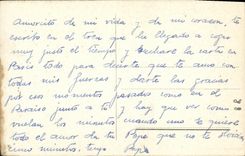 Amorcito de mi vida y de mi corazón, te
escribo en el tren que he llegado a coger
muy justo el tiempo y echaré la carta en
París todo para decirte que te amo con
todas mis fuerzas y darte las gracias
por esos momentos pasados como en el
Paraíso junto a ti y hay que ver como
vuelan los minutos cuando uno se quiere
todo el amor de tu Pepe que no te
Pepe